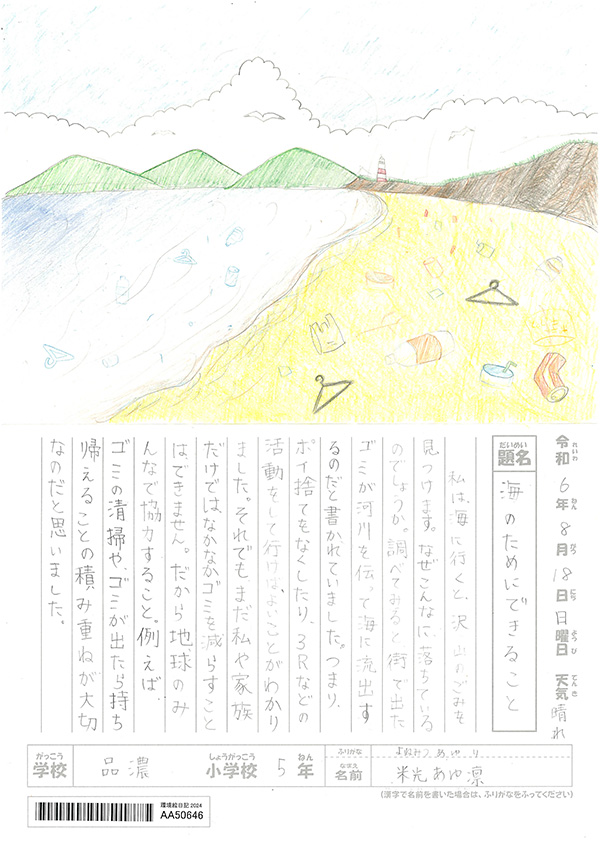 令和6年8月18日日曜日 天気晴れ
れいわ ねん がつ にち ようび てんき
だいめい
題名 海のためにできること
私は、海に行くと、沢山のごみを
見つけます。なぜこんなに落ちている
のでしょうか。調べてみると街で出た
ゴミが河川を伝って海に流出す
るのだと書かれていました。つまり、
ポイ捨てをなくしたり、3Rなどの
活動をして行けばよいことがわかり
ました。それでもまだ私や家族
だけではなかなかゴミを減らすこと
はできません。だから地球のみ
んなで協力すること。例えば、
ゴミの清掃や、ゴミが出たら持ち
帰えることの積み重ねが大切
なのだと思いました。
がっこう しょうがっこう ねん
学校 品濃 小学校 5年
ふりがな よねみつ あゆり
なまえ
名前 米光 あゆ凛
(漢字で名前を書いた場合は、ふりがなをふってください)
環境絵日記 2024
AA50646